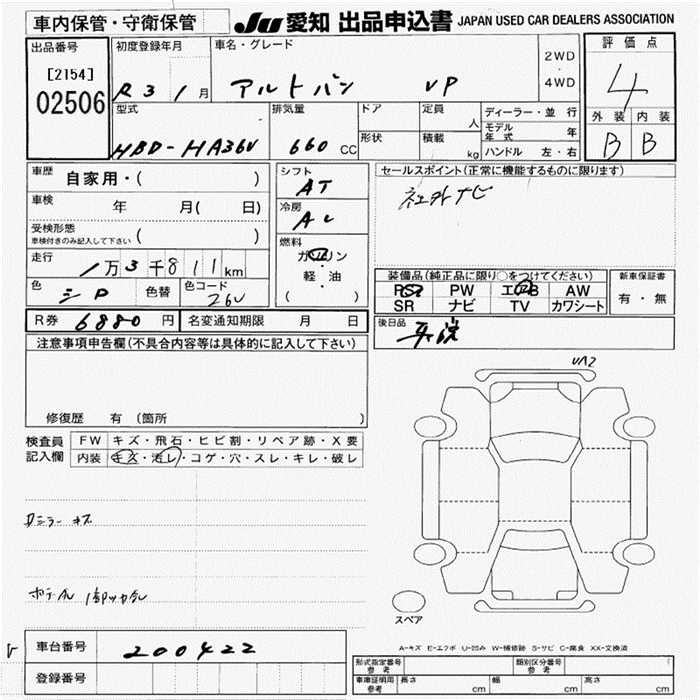 車内保管・守衛保管
JU 愛知 出品申込書 JAPAN USED CAR DEALERS ASSOCIATION
出品番号
[2154]
02506
初度登録年月
R 3 / 1 月
車名・グレード
アルトバン VP
2WD
・
4WD
評価点
4
外装 内装
B B
型式
HBD-HA36V
排気量
660 CC
ドア
形状
定員
人
積載
kg
ディーラー・並行
モデル年式 年
ハンドル 左・右
車歴
自家用・( )
車検 年 月( 日)
受検形態
車検付きのみ記入して下さい ( )
走行
1万3千811km
色 シロ 色替 色コード 26U
シフト
AT
冷房
AC
燃料
ガソリン
・
軽・油
( )
セールスポイント(正常に機能するものに限ります)
社外ナビ
装備品(純正品に限り○をつけてください)
PS PW エアB AW
SR ナビ TV カワシート
新車保証書
有・無
R券 6880 円 名変通知期限 月 日
後日品
注意事項申告欄(不具合内容等は具体的に記入して下さい)
修復歴 有 (箇所 )
検査員
記入欄
FW キズ・飛石・ヒビ割・リペア跡・X要
内装 キズ・汚レ・コゲ・穴・スレ・キレ・破レ
Dミラー キズ
UA2
スペア
A-キズ E-エクボ U-凹み W-補修跡 S-サビ C-腐食 XX-交換済
車台番号 200422
登録番号
形式指定番号
参考
類別区分番号
参考
車庫証明用
参考
長さ cm 幅 cm 高さ cm